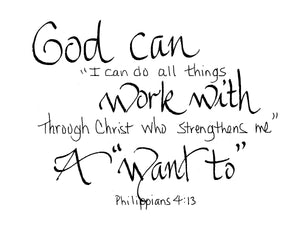 God can
"I can do all things
work with
Through Christ who strengthens me"
A "want to"
Philippians 4:13